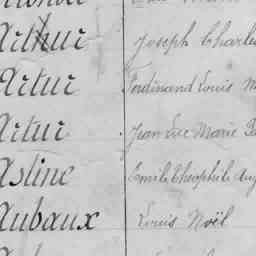 Arthur Joseph Charles
Artur Ferdinand Louis
Artur Jean Luc Marie
Astine Emile Théophile
Aubaux Louis Noël